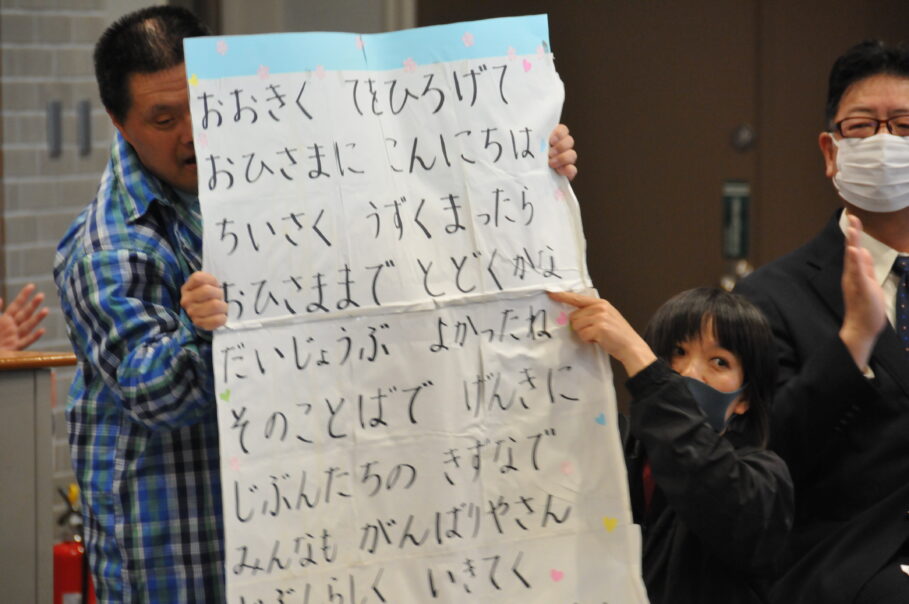 おおきく てをひろげて
おひさまに こんにちは
ちいさく うずくまったら
おひさままで とどくかな
だいじょうぶ よかったね
そのことばで げんきに
じぶんたちの きずなで
みんなも がんばりやさん
じぶんらしく いきてく